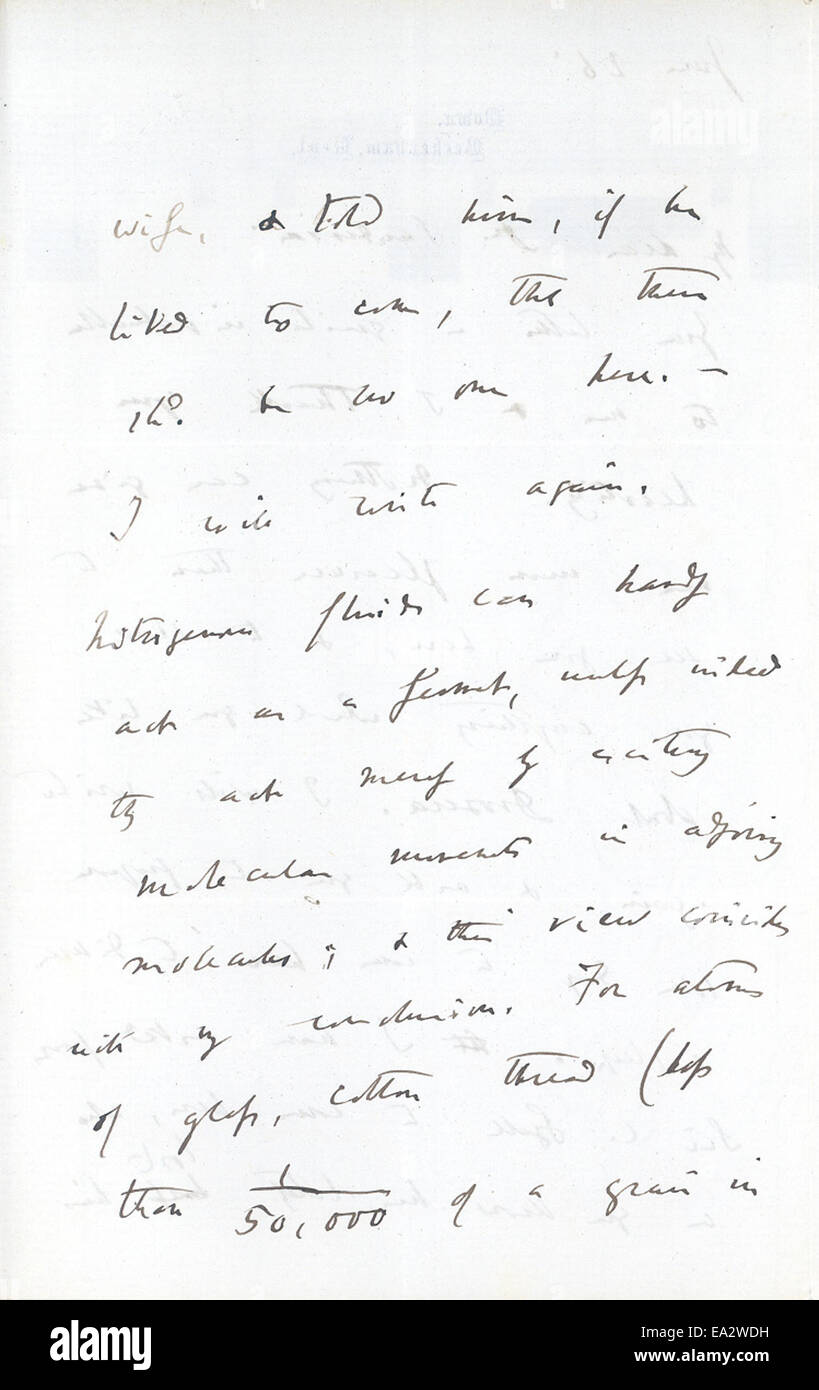 wife, & told him, if he
liked to come, that there
shd. be no one here. —
I will write again.
Nitrogenous fluids can hardly
act as a ferment, unless indeed
they act merely by exciting
molecular movements in adjoining
molecules; & this view coincides
with my conclusion. For atoms
of glass, cotton thread (less
than 1/50,000 of a grain in
alamy
Image ID: EA2WDH
www.alamy.com